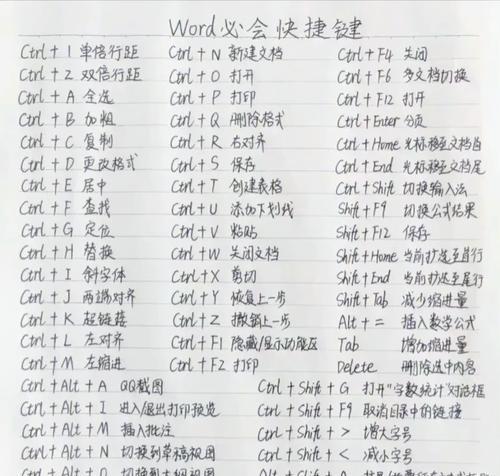 Word必会快捷键
Ctrl + 1 单倍行距 Ctrl + N 新建文档 Ctrl + F4 关闭
Ctrl + 2 双倍行距 Ctrl + O 打开 Ctrl + F6 多文档切换
Ctrl + A 全选 Ctrl + P 打印 Ctrl + F12 打开
Ctrl + B 加粗 Ctrl + Q 删除格式 Ctrl + Enter 分页
Ctrl + C 复制 Ctrl + R 右对齐 Ctrl + Home 光标移至文档首
Ctrl + D 更改格式 Ctrl + S 保存 Ctrl + End 光标移至文档尾
Ctrl + E 居中 Ctrl + T 创建表格 Ctrl + Shift 切换输入法
Ctrl + F 查找 Ctrl + U 添加下划线 Shift + F9 切换公式结果
Ctrl + G 定位 Ctrl + V 粘贴 Shift + F12 保存
Ctrl + H 替换 Ctrl + W 关闭文档 Shift + Home 当前扩选至首行
Ctrl + I 斜字体 Ctrl + X 剪切 Shift + End 当前扩选至尾行
Ctrl + J 两端对齐 Ctrl + Y 恢复上一步 Shift + Tab 减少缩进量
Ctrl + K 超链接 Ctrl + Z 撤销上一步 Alt + = 插入数学公式
Ctrl + L 左对齐 Ctrl + F1 隐藏/显示功能区 Tab 增加缩进量
Ctrl + M 左缩进 Ctrl + F2 打印 Delete 删除选中内容
Ctrl + Alt + A QQ截图 Ctrl + Shift + G 打开"字数统计"对话框
Ctrl + Alt + I 进入/退出打印预览 Ctrl + Shift + F9 取消目录中的链接
Ctrl + Alt + M 插入批注 Ctrl + Shift + > 增大字号
Ctrl + Alt + N 切换到草稿视图 Ctrl + Shift + < 减小字号
Ctrl + Alt + O 切换到大纲视图